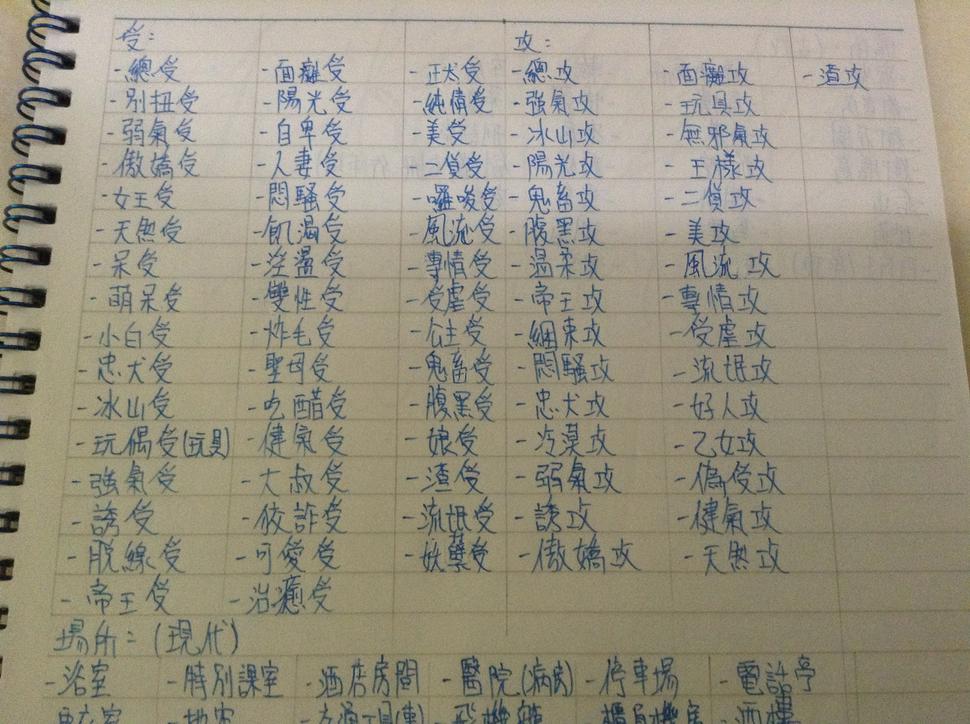 受： 攻：
-總受 -面癱受 -正太受 -總攻 -面癱攻 -渣攻
-別扭受 -陽光受 -純情受 -強氣攻 -玩具攻
-弱氣受 -自卑受 -美受 -冰山攻 -無邪氣攻
-傲嬌受 -人妻受 -二貨受 -陽光攻 -王樣攻
-女王受 -悶騷受 -囉唆受 -鬼畜攻 -二貨攻
-天然受 -飢渴受 -風流受 -腹黑攻 -美攻
-呆受 -淫蕩受 -專情受 -溫柔攻 -風流攻
-萌呆受 -雙性受 -受虐受 -帝王攻 -專情攻
-小白受 -炸毛受 -公主受 -綑束攻 -受虐攻
-忠犬受 -聖母受 -鬼畜受 -悶騷攻 -流氓攻
-冰山受 -吃醋受 -腹黑受 -忠犬攻 -好人攻
-玩偶受(玩具) -健氣受 -娘受 -冷漠攻 -乙女攻
-強氣受 -大叔受 -渣受 -弱氣攻 -偽受攻
-誘受 -狡詐受 -流氓受 -誘攻 -健氣攻
-脫線受 -可愛受 -妖孽受 -傲嬌攻 -天然攻
-帝王受 -治癒受
場所：(現代)
-浴室 -特別課室 -酒店房間 -醫院(病房) -停車場 -電話亭